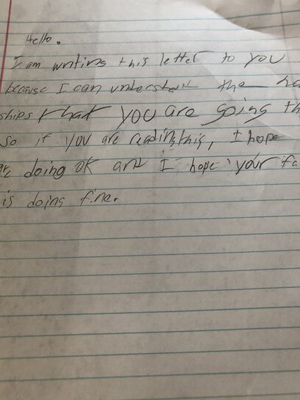 Hello.
I am writing this letter to you
because I can understand the ha
ships that you are going th
so if you are reading this, I hope
doing ok and I hope your fa
is doing fine.